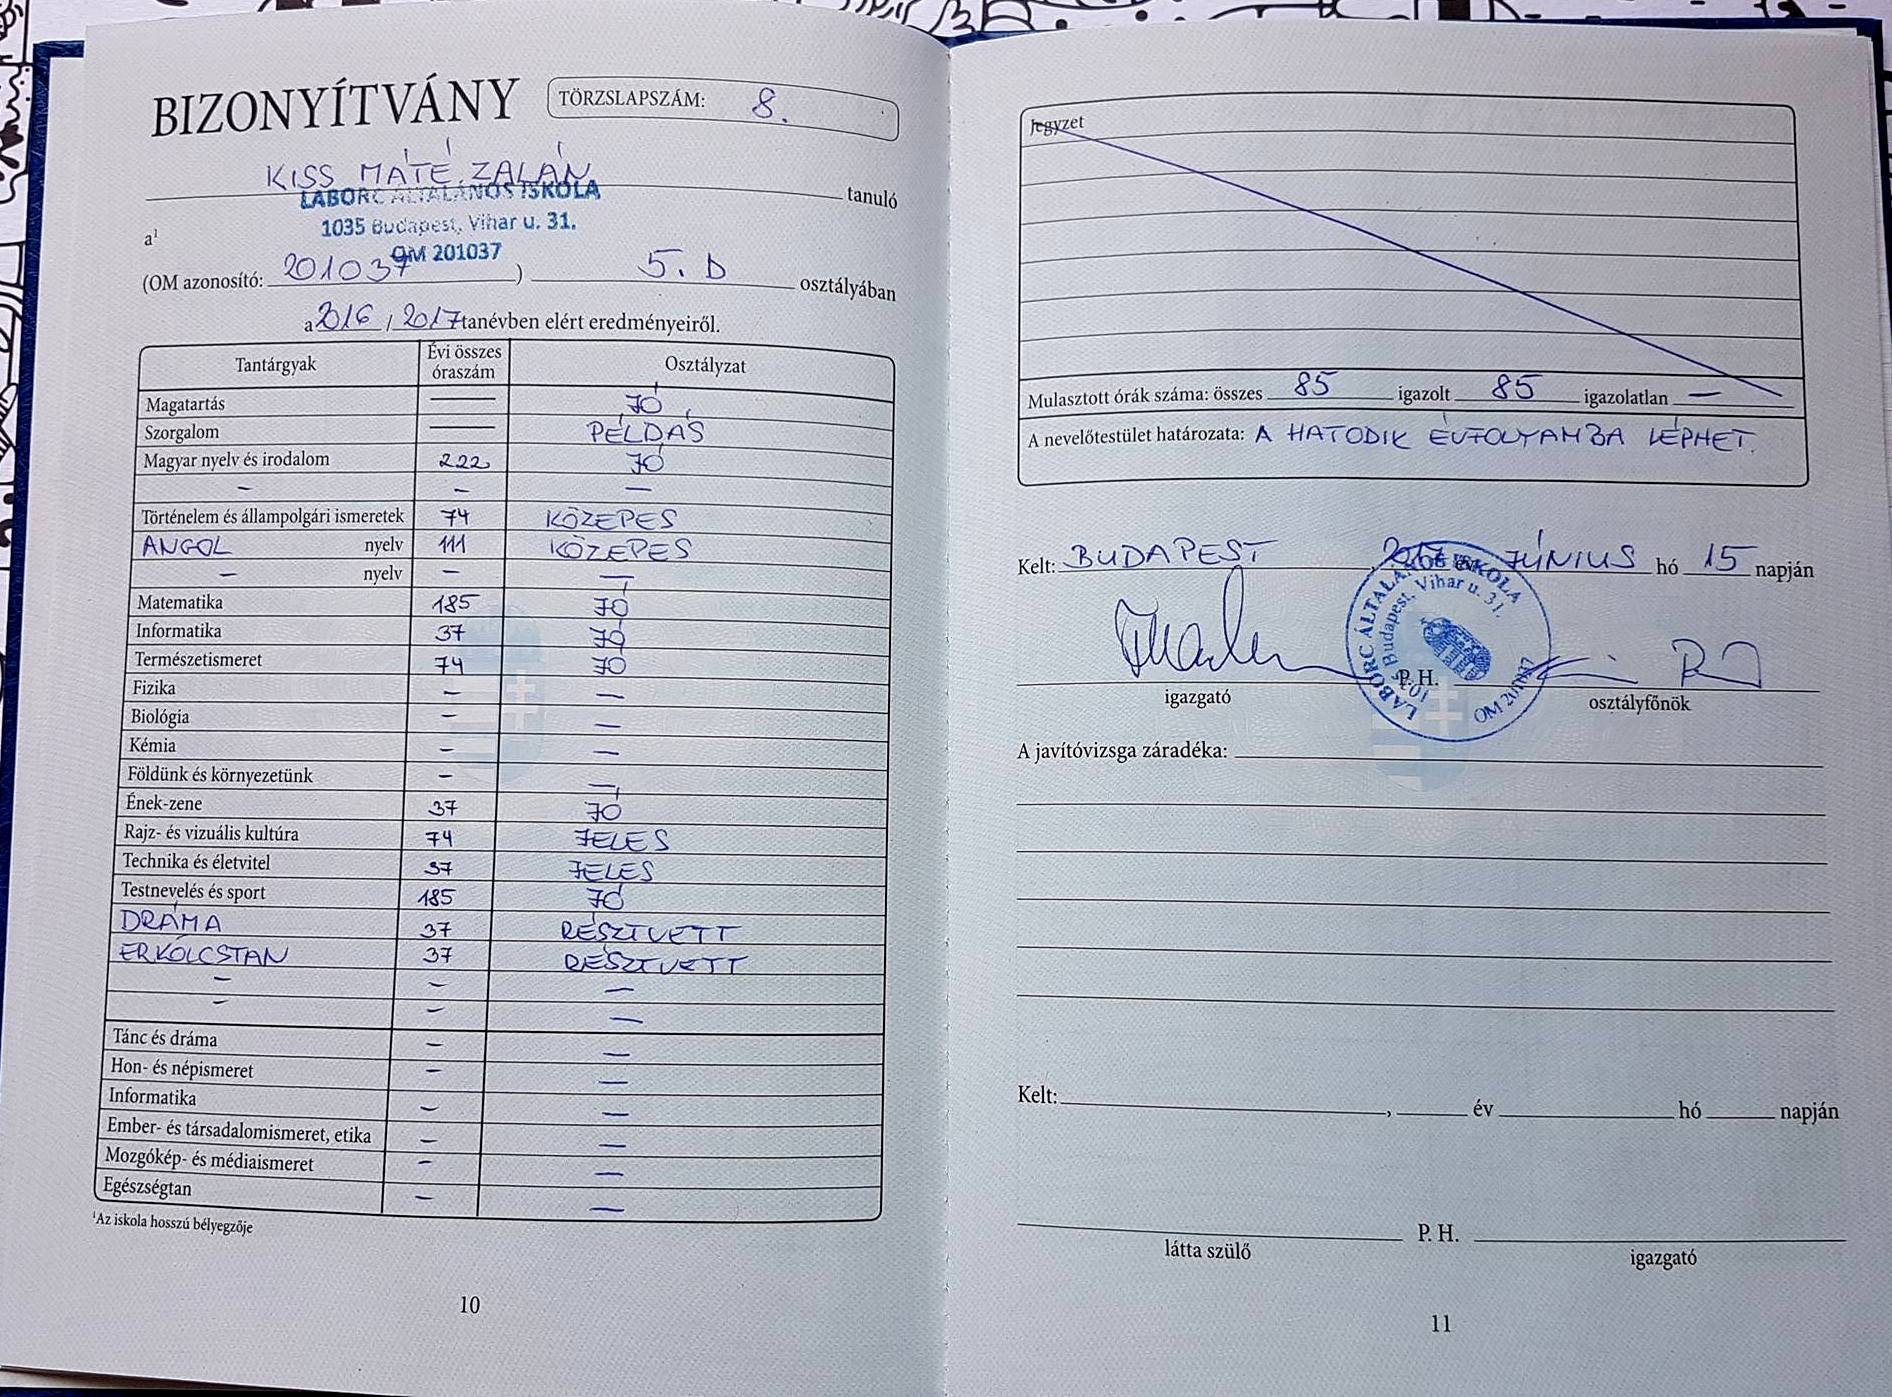 BIZONYÍTVÁNY TÖRZSLAPSZÁM: 8.
KISS MÁTÉ ZALÁN tanuló
LABORC ÁLTALÁNOS ISKOLA
a¹ 1035 Budapest, Vihar u. 31.
OM 201037
(OM azonosító: 201037) 5. D osztályában
a 2016 / 2017 tanévben elért eredményeiről.
Tantárgyak Évi összes óraszám Osztályzat
Magatartás — JÓ
Szorgalom — PÉLDÁS
Magyar nyelv és irodalom 222 JÓ
– – –
Történelem és állampolgári ismeretek 74 KÖZEPES
ANGOL nyelv 111 KÖZEPES
– nyelv – –
Matematika 185 JÓ
Informatika 37 JÓ
Természetismeret 74 JÓ
Fizika – –
Biológia – –
Kémia – –
Földünk és környezetünk – –
Ének-zene 37 JÓ
Rajz- és vizuális kultúra 74 JELES
Technika és életvitel 37 JELES
Testnevelés és sport 185 JÓ
DRÁMA 37 RÉSZTVETT
ERKÖLCSTAN 37 RÉSZTVETT
– – –
– – –
Tánc és dráma – –
Hon- és népismeret – –
Informatika – –
Ember- és társadalomismeret, etika – –
Mozgókép- és médiaismeret – –
Egészségtan – –
¹Az iskola hosszú bélyegzője
10
Jegyzet
Mulasztott órák száma: összes 85 igazolt 85 igazolatlan —
A nevelőtestület határozata: A HATODIK ÉVFOLYAMBA LÉPHET.
Kelt: BUDAPEST, 2017 év JÚNIUS hó 15 napján
LABORC ÁLTALÁNOS ISKOLA
1035 Budapest, Vihar u. 31.
OM 201037
P. H.
igazgató osztályfőnök
A javítóvizsga záradéka:
Kelt: , év hó napján
P. H.
látta szülő igazgató
11